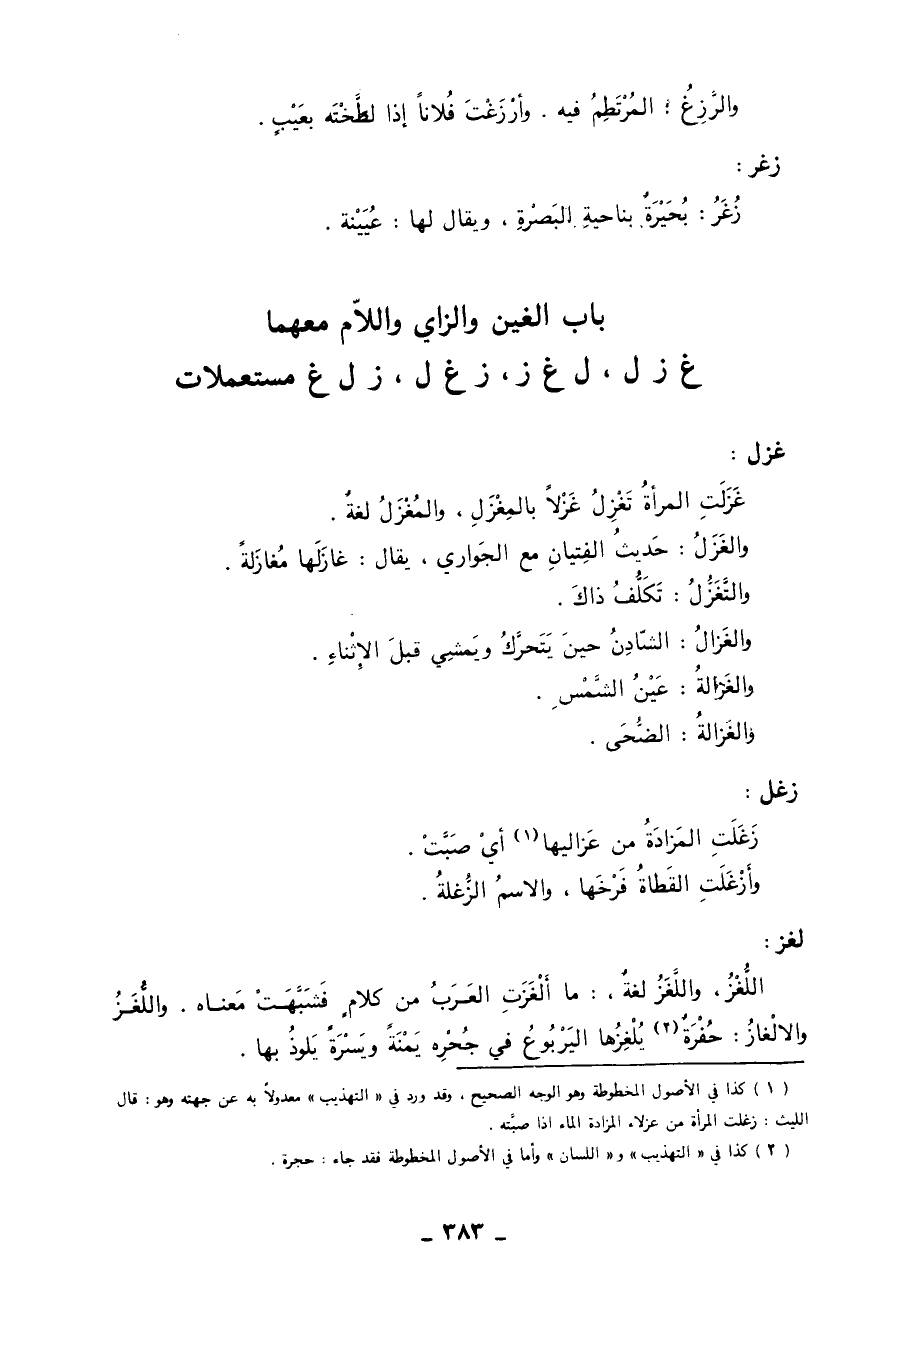 والرَّزِغُ : المُرْتَطِمُ فيه . وأرْزَغْتَ فُلاناً إذا لطَّخْتَه بعَيْبٍ .
زغر :
زُغَرُ : بُحَيْرَةٌ بناحيةِ البَصْرةِ ، ويقال لها : عُيَيْنة .
باب الغين والزاي واللاّم معهما
غ ز ل ، ل غ ز، ز غ ل ، ز ل غ مستعملات
غزل :
غَزَلَتِ المرأةُ تَغْزِلُ غَزْلاً بالمِغْزَلِ ، والمُغْزَلُ لغةٌ .
والغَزَلُ : حَديثُ الفِتيانِ مع الجَواري ، يقال : غازَلَها مُغازَلةً .
والتَّغَزُّلُ : تَكَلُّفُ ذاكَ .
والغَزالُ : الشّادِنُ حينَ يَتَحرَّكُ ويَمشِي قبلَ الإِثْناءِ .
والغَزالةُ : عَيْنُ الشَّمْسِ .
والغَزالةُ : الضُّحَى .
زغل :
زَغَلَتِ المَزادَةُ من عَزاليها(١) أيْ صَبَّتْ .
وأَزْغَلَتِ القَطاةُ فَرْخَها ، والاسمُ الزُّغلةُ .
لغز :
اللُّغْزُ، واللَّغَزُ لغةٌ ، : ما أَلْغَزَتِ العَرَبُ من كلامٍ فَشَبَّهَتْ مَعناه . واللُّغَزُ
والالْغازُ : حُفْرَةٌ(٢) يُلْغِزُها اليَرْبُوعُ في جُحْرِه يَمْنَةً ويَسْرَةً يَلوذُ بها .
( ١ ) كذا في الأصول المخطوطة وهو الوجه الصحيح ، وقد ورد في « التهذيب » معدولاً به عن جهته وهو : قال
الليث : زغلت المرأة من عزلاء المزادة الماء اذا صبَّته .
( ٢ ) كذا في « التهذيب » و« اللسان » وأما في الأصول المخطوطة فقد جاء : حجرة .
ـ ٣٨٣ ـ